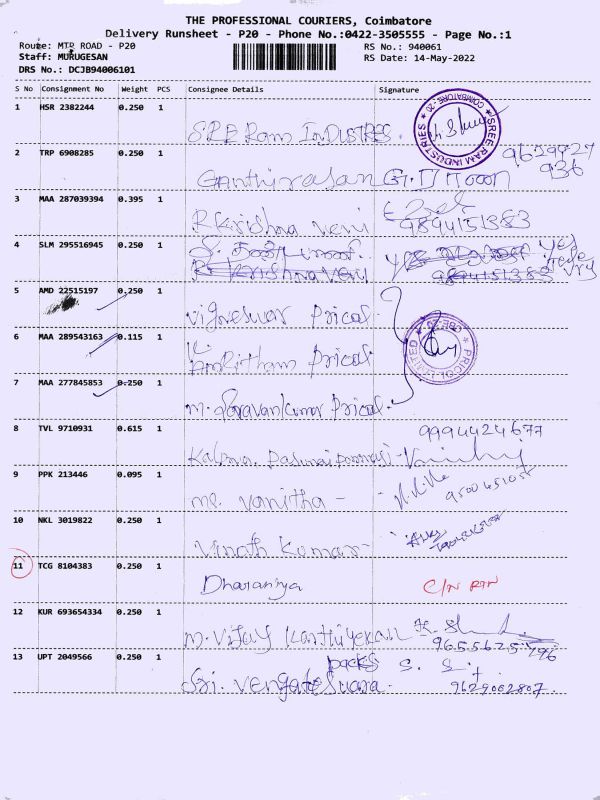 THE PROFESSIONAL COURIERS, Coimbatore
Delivery Runsheet - P20 - Phone No.:0422-3505555 - Page No.:1
Route: MTP ROAD - P20
RS No.: 940061
Staff: MURUGESAN
RS Date: 14-May-2022
DRS No.: DCJB94006101
S No Consignment No Weight PCS Consignee Details Signature
1 HSR 2382244 0.250 1
SREE RAM INDUSTRIES * COIMBATORE - 20 *
SRE Ram InDUSTRES.
2 TRP 6908285 0.250 1
9629727
936
3 MAA 287039394 0.395 1
R Krishna veni 9894151383
4 SLM 295516945 0.250 1
R Krishna veni 9894151383
5 AMD 22515197 0.250 1
vigneswar Pricol.
6 MAA 289543163 0.115 1
Amritham Pricol.
PRICOL LIMITED * CBE-20 *
7 MAA 277845853 0.250 1
m. Saravankumar Pricol.
8 TVL 9710931 0.615 1
9994424677
9 PPK 213446 0.095 1
ms. vanitha -
10 NKL 3019822 0.250 1
Vinoth Kumar-
11 TCG 8104383 0.250 1
Dharaniya C/N RTN
12 KUR 693654334 0.250 1
m. Vijay Karthiyekan
9655625796
13 UPT 2049566 0.250 1
packs S. S.
Sri. Vengateswara. 9629002807.